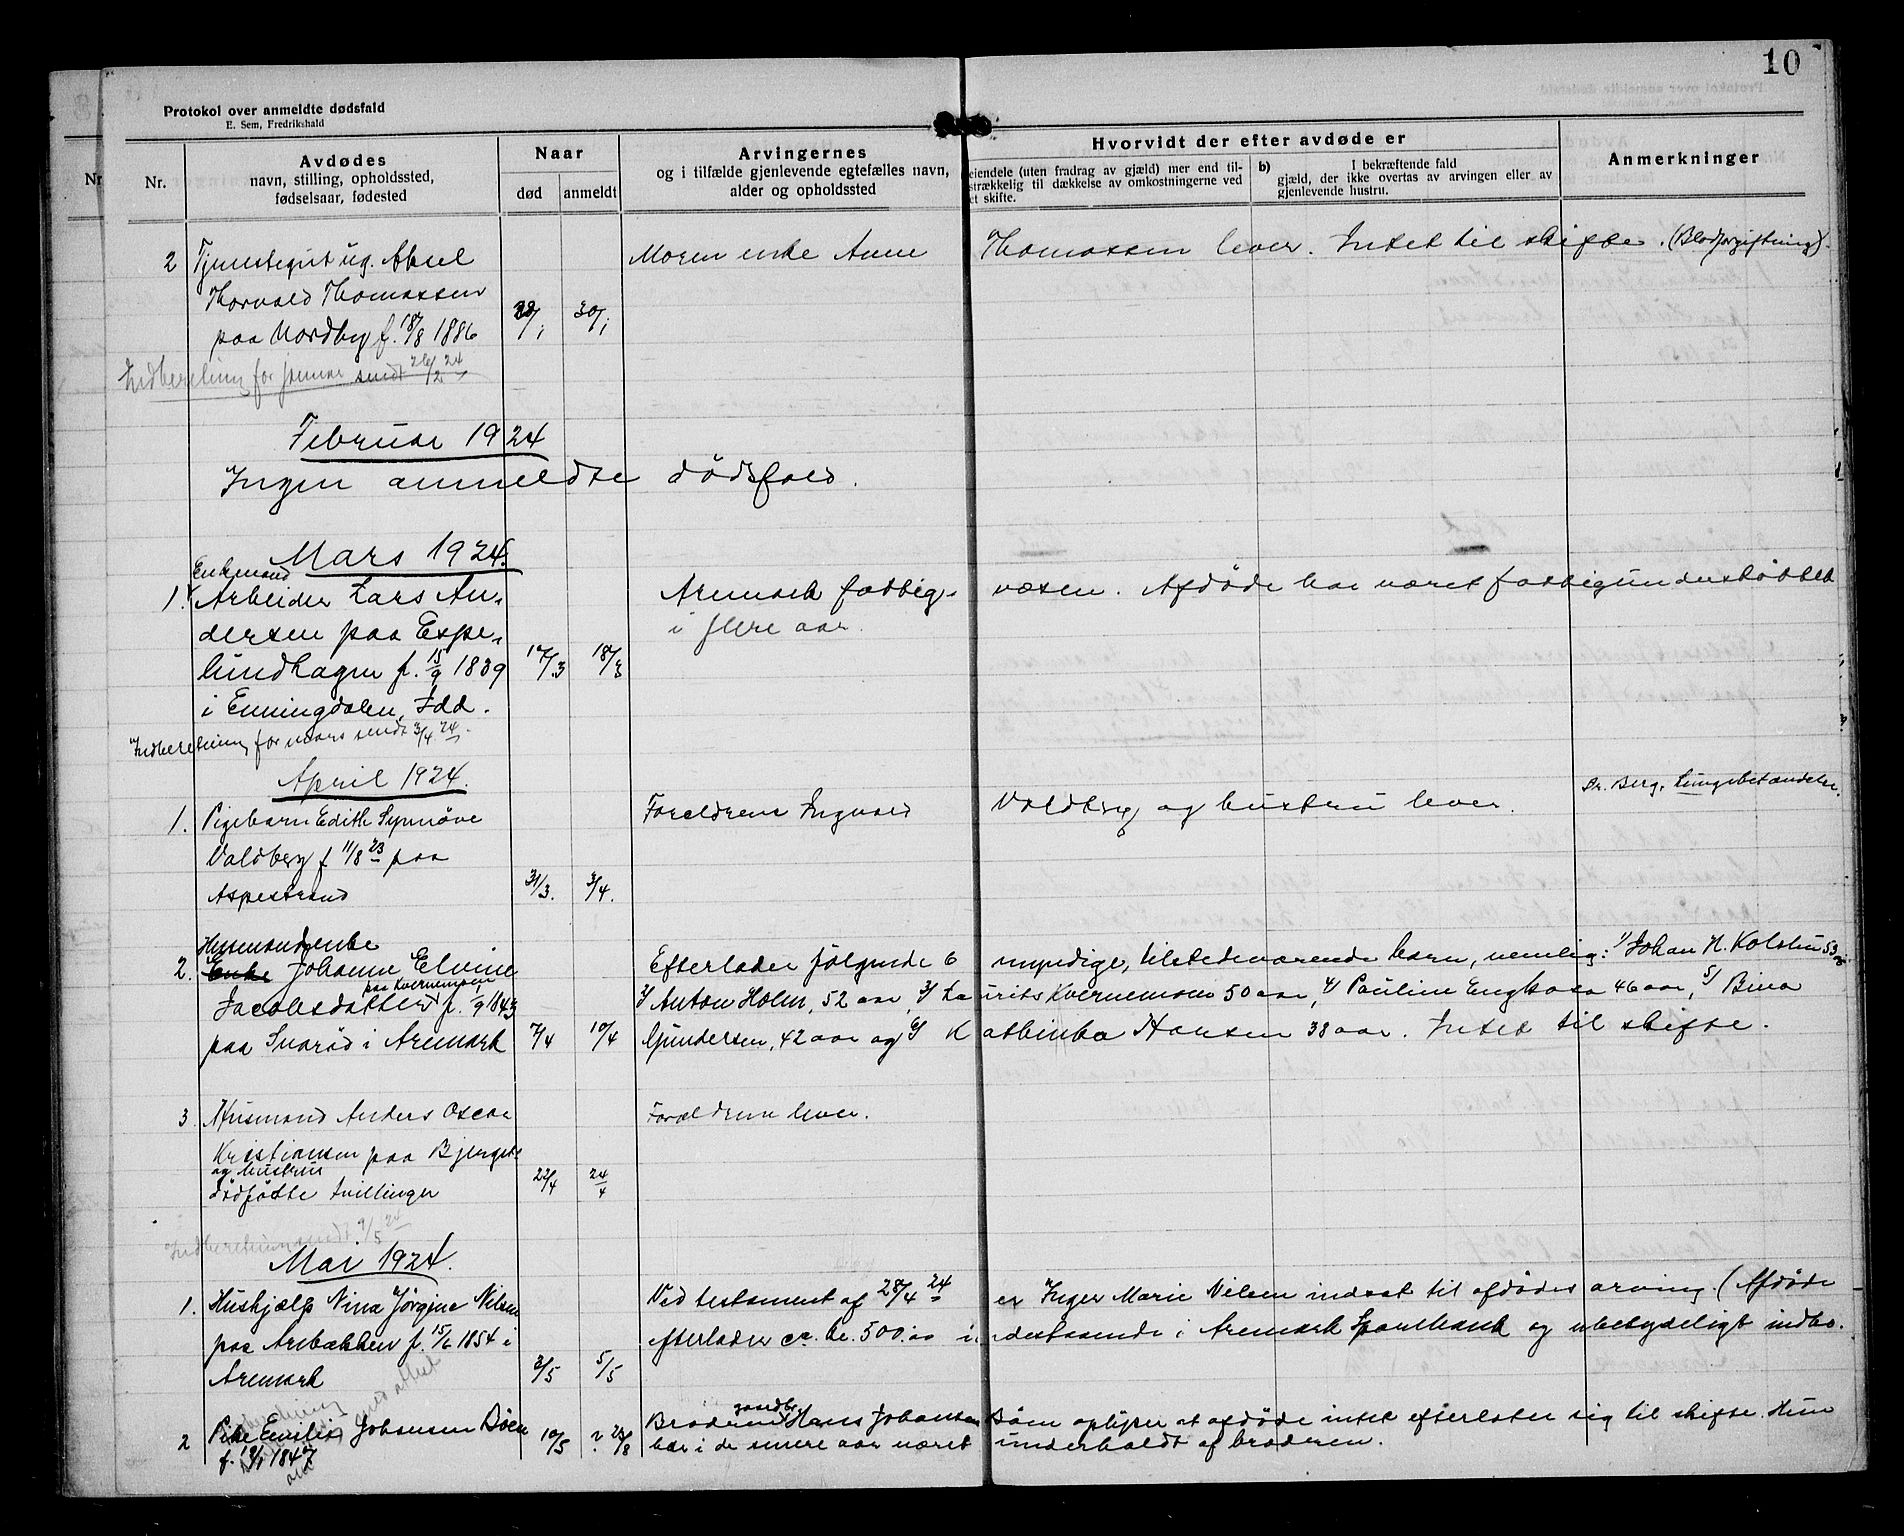 10
Protokol over anmeldte dødsfald
E. Sem, Fredrikshald
Nr.
Nr.
Avdødes
navn, stilling, opholdssted,
fødselsaar, fødested
Naar
død
anmeldt
Arvingernes
og i tilfælde gjenlevende egtefælles navn,
alder og opholdssted
Hvorvidt der efter avdøde er
eiendele (uten fradrag av gjæld) mer end til-
strækkelig til dækkelse av omkostningerne ved
et skifte.
b) I bekræftende fald
gjæld, der ikke overtas av arvingen eller av
gjenlevende hustru.
Anmerkninger
2 Tjenestegut ug. Aksel Moren enke Anne Thomassen lever. Intet til skifte. (Blodforgiftning).
Thorvald Thomassen
paa Nordby f. 18/8 1886 30/1
Indberetning for januar sendt 26/2 24
Februar 1924
Ingen anmeldte dødsfald.
Mars 1924.
Enkemand
1. Arbeider Lars An- Aremark fattig- væsen. Afdøde har været fattigunderstøttet
dersen paa Espe- i flere aar.
lundhagen f. 15/9 1839 17/3 18/3
i Enningdalen, Idd.
Indberetning for mars sendt 3/4 24.
April 1924.
1. Pigebarn Edith Synnøve Forældrene Ingvald Valdberg og hustru lever. Dr. Berg. Lungebetændelse.
Valdberg f 11/8 23 paa
Aspestrand 31/3. 3/4.
Husmandsenke
2. Enke Johanne Elvine Efterlader følgende 6 myndige, tilstedeværende barn, nemlig: 1/ Johan H. Kolsten 53
paa Kvernemoen
Jacobsdatter f. 1/9 1843 2/ Anton Holm, 52 aar, 3/ Laurits Kvernemoen 50 aar, 4/ Pauline 46 aar, 5/ Bina
paa Svarød i Aremark 7/4 10/4 Gundersen, 42 aar og 6/ Kathinka Hansen 38 aar. Intet til skifte.
3. Husmand Anders Oscar Forældrene lever.
Kristiansen paa
og hustrus
dødfødte tvillinger 22/4 24/4
Indberetning sendt 9/5 24
Mai 1924.
1. Hushjælp Nina Jørgine Nilsen Ved testament af 28/4 24 er Inger Marie Nilsen indsat til afdødes arving (Afdøde
paa Arebakken f. 15/6 1854 i efterlader ca. kr. 500.00 indestaaende i Aremark Sparebank og ubetydeligt indbo.
Aremark 3/5 5/5
2 Pike Emilie Johansen Bøen 10/5 ? 23/8 Broderen gaardbr. Hans Johansen Bøen oplyser at afdøde intet efterlater sig til skifte. Hun
f. 1847 har i de senere aar været underholdt af broderen.